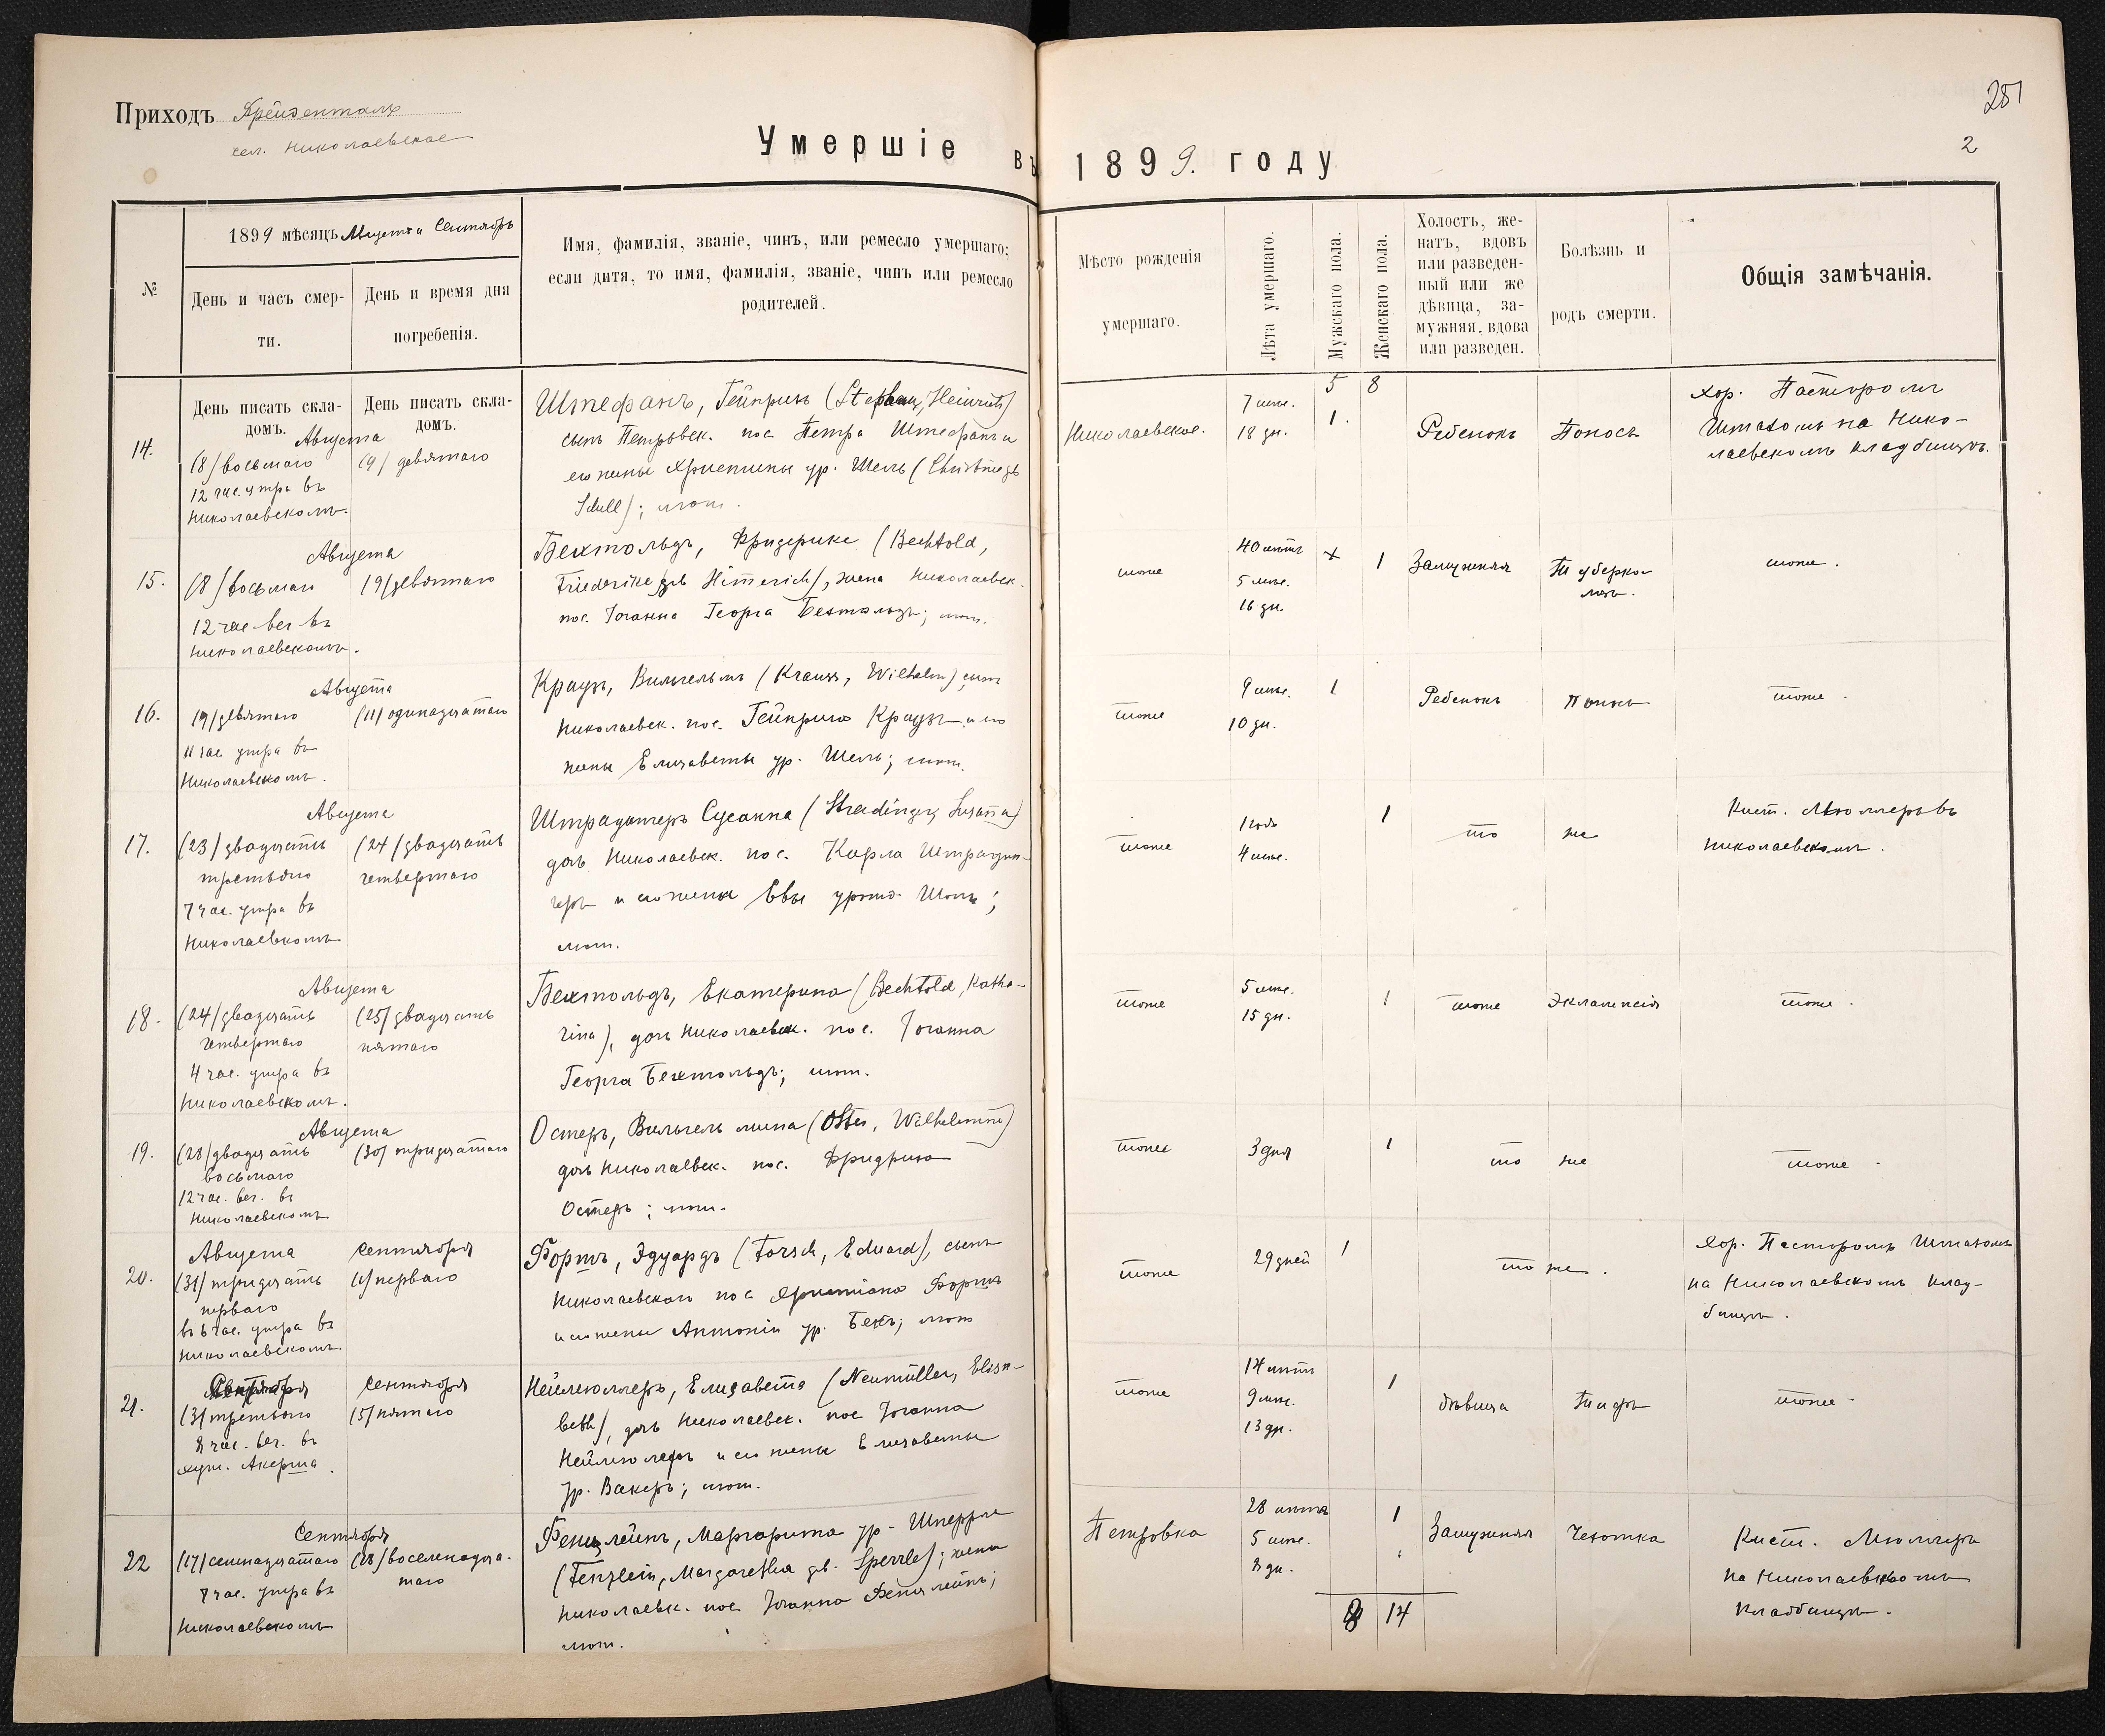 Приходъ Фрейденталь
сел. Николаевское
Умершіе въ 1899. году
281
2
№
1899 мѣсяцъ Августъ и Сентябрь
День и часъ смер-
ти.
День и время дня
погребенія.
Имя, фамилія, званіе, чинъ, или ремесло умершаго;
если дитя, то имя, фамилія, званіе, чинъ или ремесло
родителей.
Мѣсто рожденія
умершаго.
Лѣта умершаго.
Мужскаго пола.
Женскаго пола.
Холостъ, же-
натъ, вдовъ
или разведен-
ный или же
дѣвица, за-
мужняя, вдова
или разведен.
Болѣзнь и
родъ смерти.
Общія замѣчанія.
День писать скла-
домъ.
День писать скла-
домъ.
5 8
14.
Августа
(8) восьмаго
12 час. утра въ
Николаевскомъ.
(9) девятаго
Штефанъ, Гейнрихъ (Stephan, Heinrich)
сынъ Петровск. пос. Петра Штефанъ и
его жены Христины ур. Шель (Christine gb
Schell); лют.
Николаевское.
7 мѣс.
18 дн.
1.
Ребенокъ
Поносъ
Хор. Пасторомъ
Штахомъ на Нико-
лаевскомъ кладбищѣ.
15.
Августа
(8) восьмаго
12 час. веч. въ
Николаевскомъ.
(9) девятаго
Бехтольдъ, Фридерике (Bechtold,
Friederike gb Himmerich), жена Николаевск.
пос. Іоганна Георга Бехтольдъ; лют.
тоже
40 лѣтъ
5 мѣс.
16 дн.
1
Замужняя
Туберко-
лезъ.
тоже.
16.
Августа
(9) девятаго
11 час. утра въ
Николаевскомъ.
(11) одинадцатаго
Краузъ, Вильгельмъ (Krauss, Wilhelm) сынъ
Николаевск. пос. Гейнриха Краузъ и его
жены Елизаветы ур. Шель; лют.
тоже
9 мѣс.
10 дн.
1
Ребенокъ
Поносъ
тоже.
17.
Августа
(23) двадцать
третьяго
7 час. утра въ
Николаевскомъ
(24) двадцать
четвертаго
Штрадингеръ Сусанна (Stradinger, Susanna)
дочь Николаевск. пос. Карла Штрадин-
геръ и его жены Евы урожд. Шель;
лют.
тоже
1 годъ
4 мѣс.
1
то же
Кист. Мюллеръ въ
Николаевскомъ.
18.
Августа
(24) двадцать
четвертаго
4 час. утра въ
Николаевскомъ.
(25) двадцать
пятаго
Бехтольдъ, Екатерина (Bechtold, Katha-
rina), дочь Николаевск. пос. Іоганна
Георга Бехтольдъ; лют.
тоже
5 мѣс.
15 дн.
1
тоже
Эклампсія
тоже.
19.
Августа
(28) двадцать
восьмаго
12 час. веч. въ
Николаевскомъ
(30) тридцатаго
Остеръ, Вильгельмина (Oster, Wilhelmine)
дочь Николаевск. пос. Фридриха
Остеръ; лют.
тоже
3 дня
1
то же
тоже.
20.
Августа
(31) тридцать
перваго
въ 6 час. утра въ
Николаевскомъ.
Сентября
(1) перваго
Форшъ, Эдуардъ (Forsch, Eduard), сынъ
Николаевскаго пос Христіана Форшъ
и его жены Антоніи ур. Бекъ; лют
тоже
29 дней
1
то же.
Хор. Пасторомъ Штахомъ
на Николаевскомъ клад-
бищѣ.
21.
Сентября
(3) третьяго
8 час. веч. въ
хут. Акерта.
Сентября
(5) пятаго
Неймюллеръ, Елизавета (Neumüller, Elisa-
beth), дочь Николаевск. пос Іоганна
Неймюлеръ и его жены Елизаветы
ур. Вакеръ; лют.
тоже
14 лѣтъ
9 мѣс.
13 дн.
1
дѣвица
Тифъ
тоже
22
Сентября
(17) семнадцатаго
7 час. утра въ
Николаевскомъ
(18) восемнадца-
таго
Фенцлейнъ, Маргарита ур. Шперрле
(Fenzlein, Margaretha gb. Sperrle); жена
Николаевск. пос Іоганна Фенцлейнъ;
лют.
Петровка
28 лѣтъ
5 мѣс.
8 дн.
1
Замужняя
Чахотка
Кист. Мюллеръ
на Николаевскомъ
кладбищѣ.
8 14